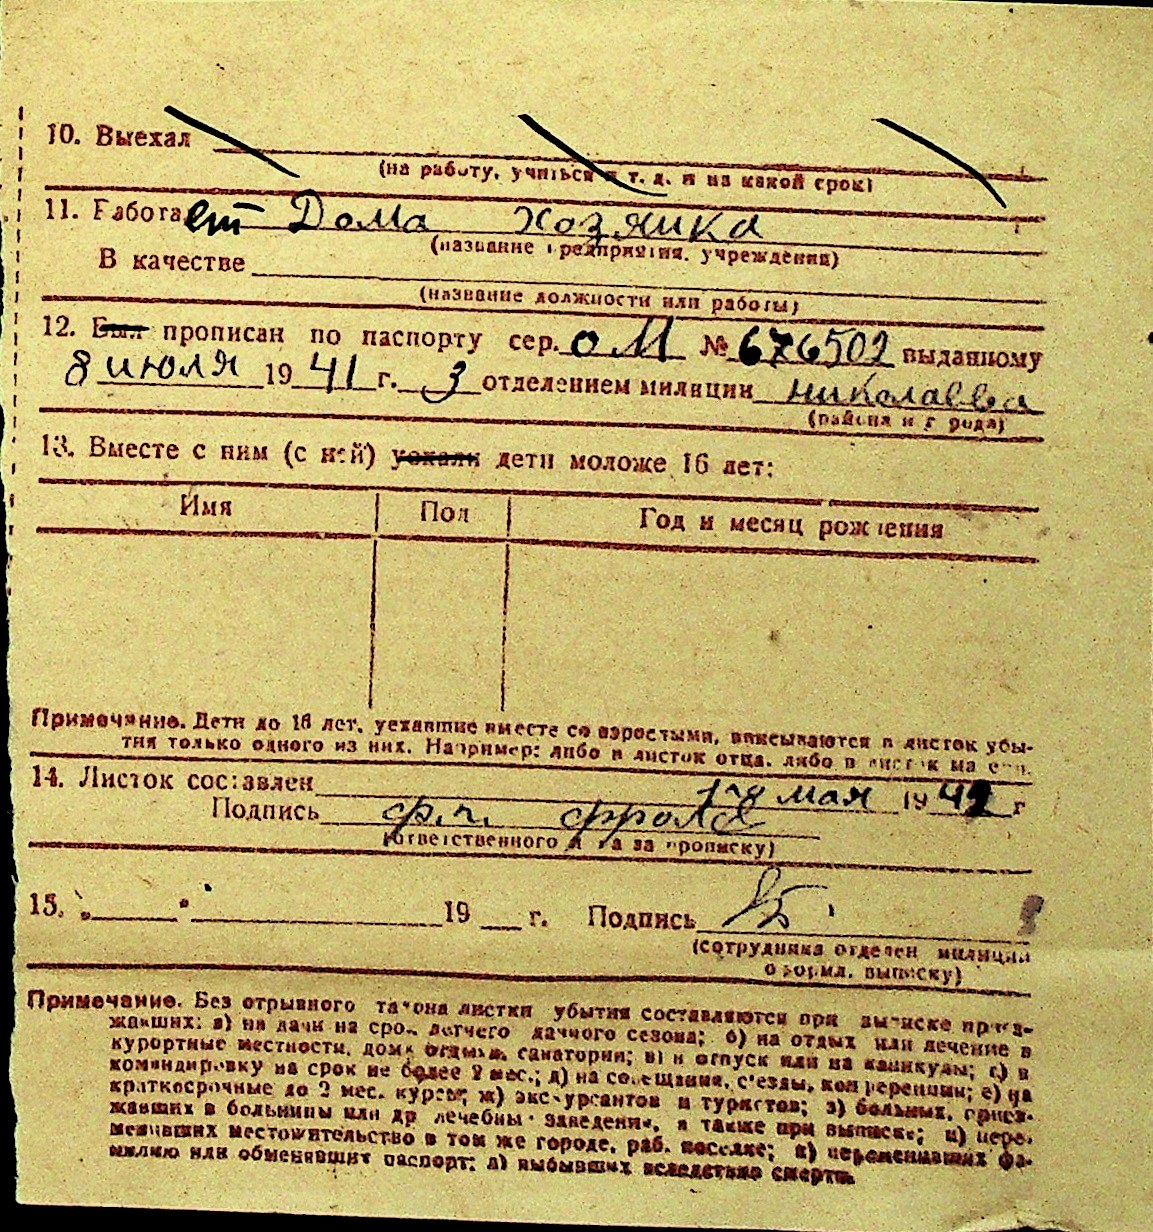 10. Выехал
(на работу, учиться и т. д. и на какой срок)
11. Работает Дома хозяика
(название предприятия, учреждения)
В качестве
(название должности или работы)
12. Был прописан по паспорту сер. о М № 676502 выданному
8 июля 1941 г. 3 отделением милиции николаева
(района и города)
13. Вместе с ним (с ней) уехали дети моложе 16 лет:
Имя Пол Год и месяц рождения
Примечание. Дети до 16 лет, уехавшие вместе со взрослыми, вписываются в листок убы-
тия только одного из них. Например: либо в листок отца, либо в листок матери.
14. Листок составлен мая 1942 г
Подпись
(ответственного лица за прописку)
15. „ " 19 г. Подпись
(сотрудника отделен милиции
оформл. выписку)
Примечание. Без отрывного талона листки убытия составляются при выписке приез-
жавших: а) на дачи на срок летнего дачного сезона; б) на отдых или лечение в
курортные местности, дома отдыха, санатории; в) в отпуск или на каникулы; г) в
командировку на срок не более 2 мес.; д) на совещания, с'езды, конференции; е) на
краткосрочные до 2 мес. курсы; ж) экскурсантов и туристов; з) больных, приез-
жавших в больницы или др лечебные заведения, а также при выписке; и) пере-
менивших местожительство в том же городе, раб. поселке; к) переменивших фа-
милию или обменявших паспорт; л) выбывших вследствие смерти.